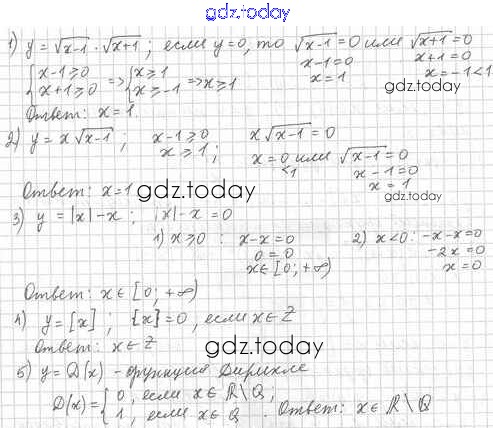 gdz.today
1) y = √x-1 · √x+1 ; если y=0, то √x-1 = 0 или √x+1 = 0
x-1=0 x+1=0
x=1 x=-1<1
{x-1≥0 x+1≥0 => {x≥1 x≥-1 => x≥1
gdz.today
Ответ: x=1.
2) y = x√x-1 ; x-1≥0 x√x-1 = 0
x≥1; x=0 или √x-1 = 0
<1 x-1=0
x=1
Ответ: x=1 gdz.today
3) y = |x|-x ; |x|-x = 0
1) x≥0 : x-x=0 2) x<0: -x-x=0
0=0 -2x=0
x∈[0; +∞) x=0
gdz.today
Ответ: x∈[0; +∞)
4) y=[x] ; {x}=0, если x∈Z
Ответ: x∈Z gdz.today
5) y=D(x) - функция Дирихле
D(x)={0, если x∈R\Q, 1, если x∈Q . Ответ: x∈R\Q